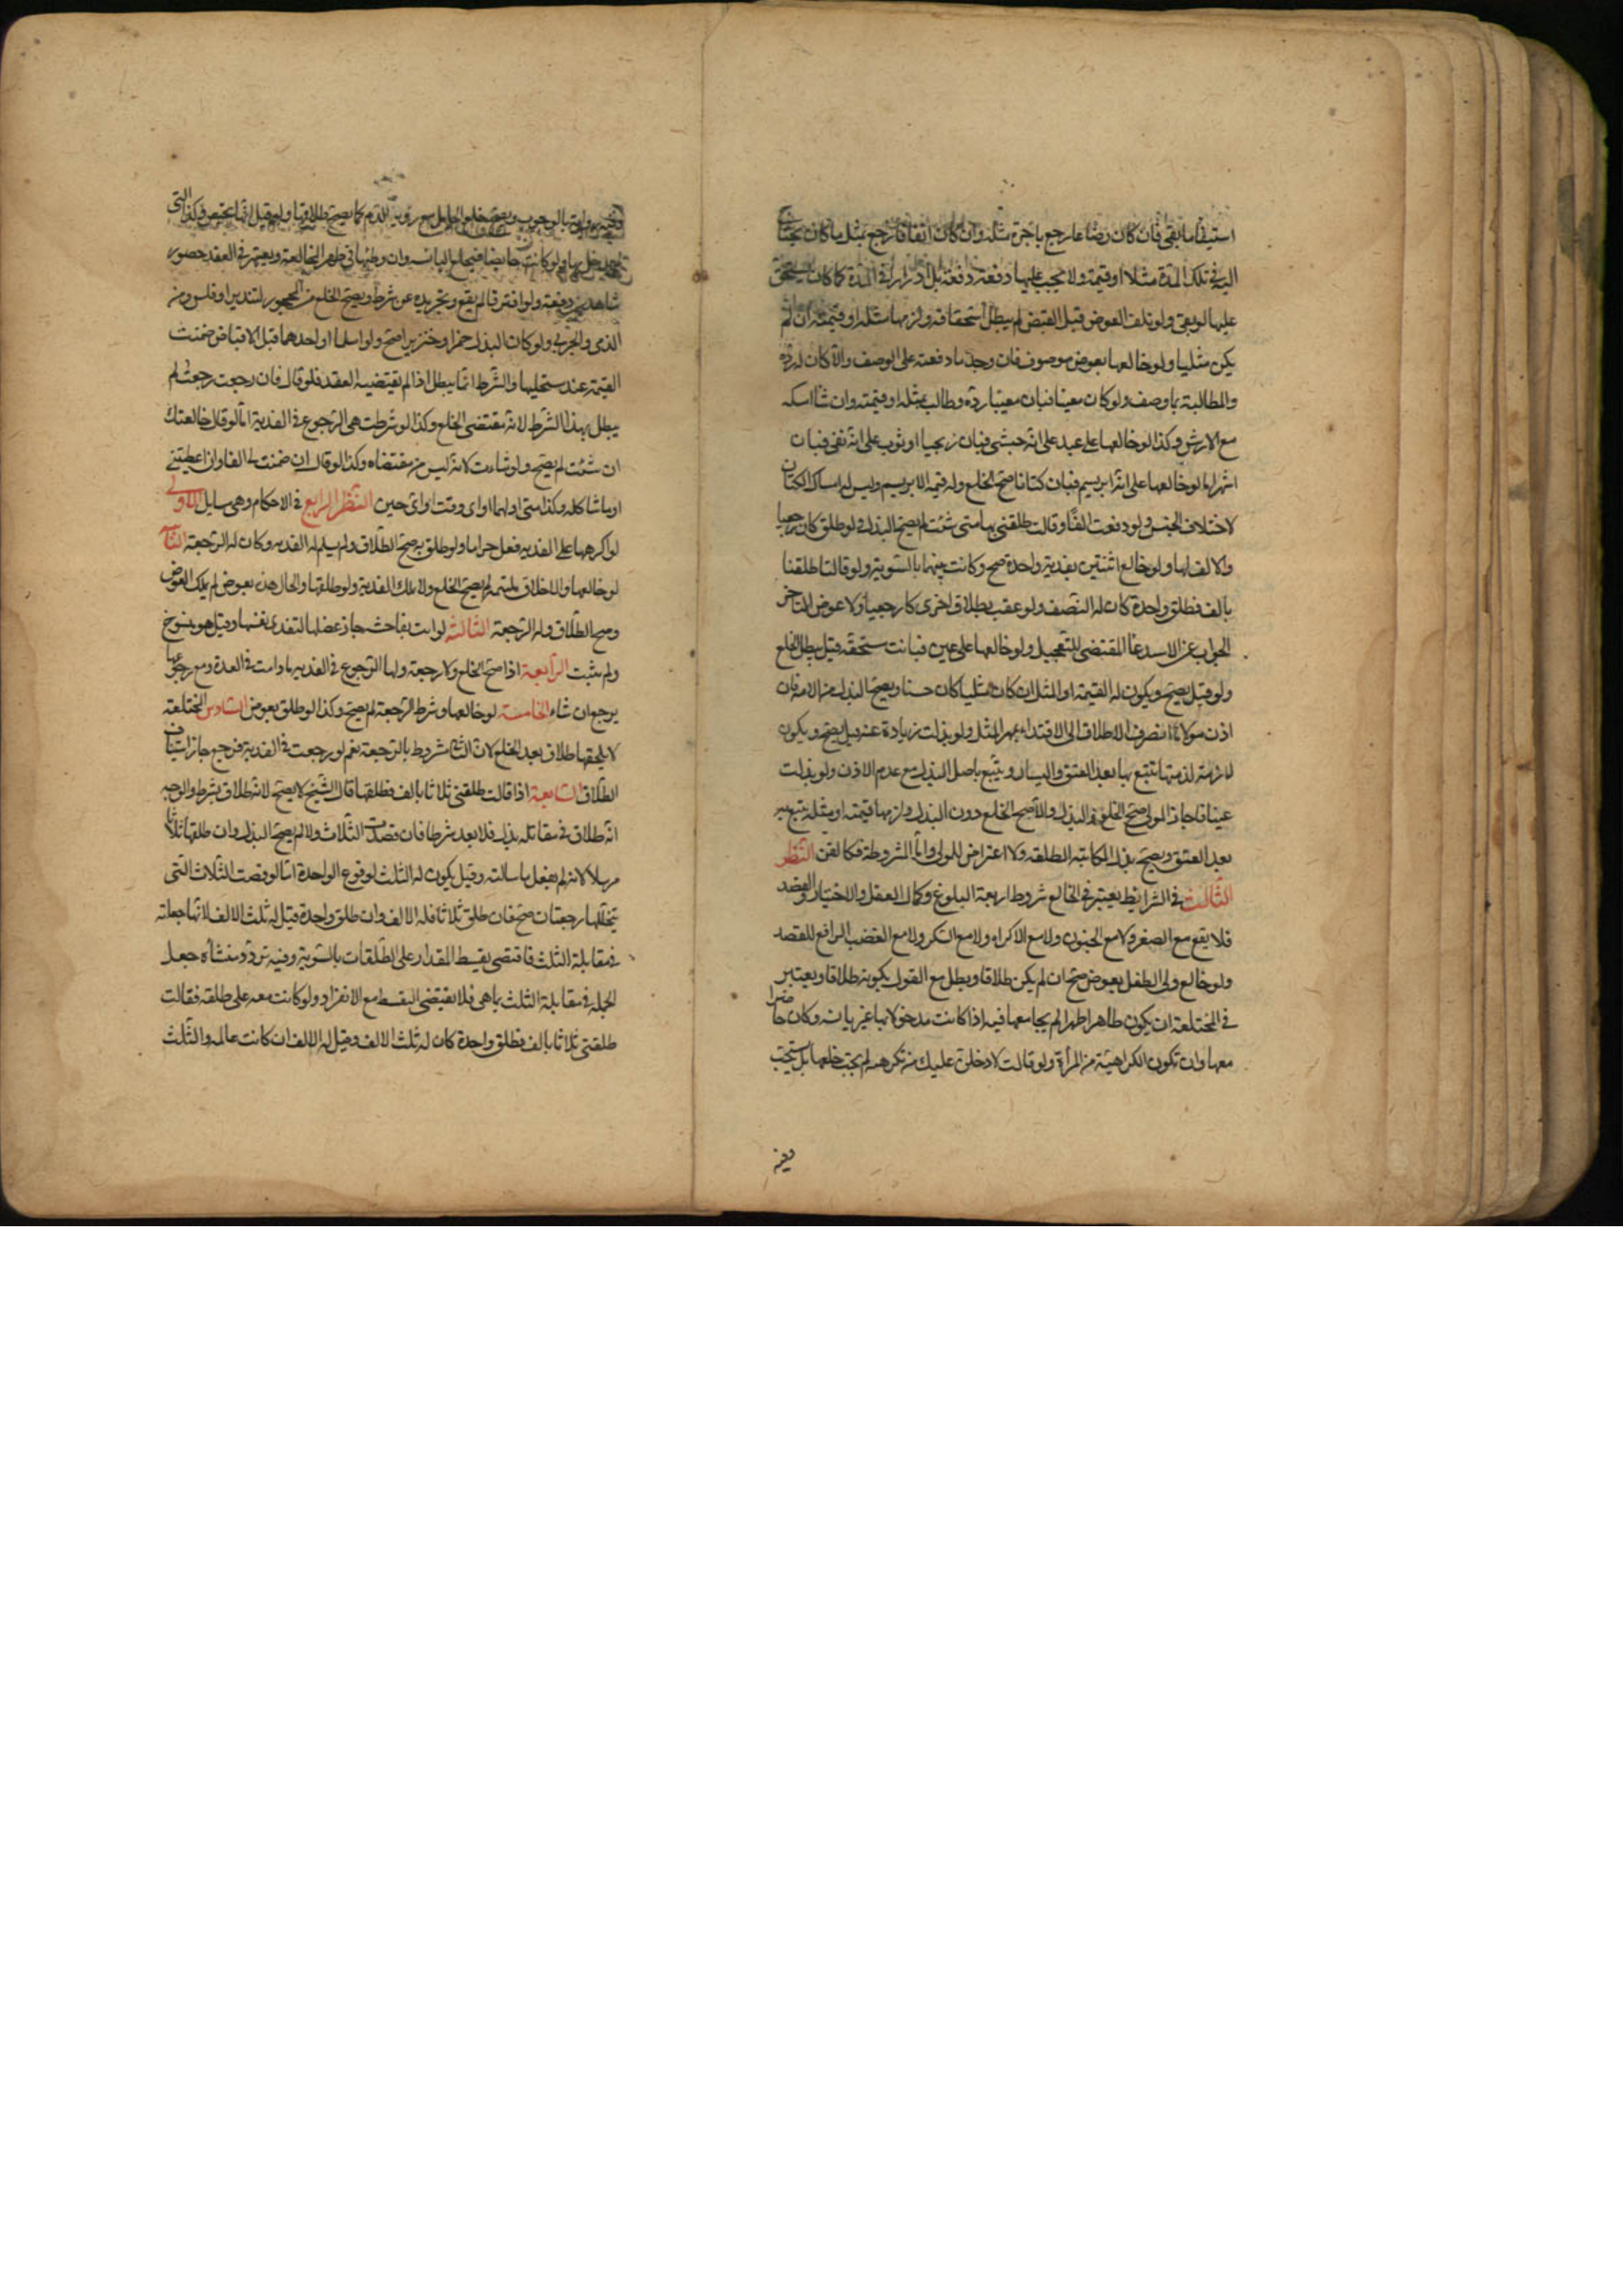 استيفا ما بقى فان كان رضاعا رجع باجرة مثله وان كان انفاقا رجع بمثل ما كان يحتاج
اليه في تلك المدة مثلا او قيمة ولا يجب عليها دفعه دفعة بل ادرارا في المدة كما كان يستحق
عليها لو بقى ولو تلف العوض قبل القبض لم يبطل استحقاقه ولزمها مثله او قيمته ان لم
يكن مثليا ولو خالعها بعوض موصوف فان وجد ما دفعته على الوصف والا كان له رده
والمطالبة بما وصف ولو كان معينا فبان معيبا رده وطالب بمثله او قيمته وان شا امسكه
مع الارش وكذا لو خالعها على عبد على انه حبشى فبان زنجيا او ثوب على انه نقى فبان
اسمر اما لو خالعها على انه ابريسم فبان كتانا صح الخلع وله قيمة الابريسم وليس له امساك الكتان
لاختلاف الجنس ولو دفعت الفا وقالت طلقنى بها متى شئت لم يصح البذل ولو طلق كان رجعيا
والالف لها ولو خالع اثنتين بفدية واحدة صح وكانت بينهما بالسوية ولو قالتا طلقنا
بالف فطلق واحدة كان له النصف ولو عقب بطلاق اخرى كان رجعيا ولا عوض لتاخر
الجواب عن الاستدعا المقتضى للتعجيل ولو خالعها على عين فبانت مستحقه قيل يبطل الخلع
ولو قيل يصح ويكون له القيمة او المثل ان كان مثليا كان حسنا ويصح البذل من الامة فان
اذن مولاها انصرف الاطلاق الى الافتداء بمهر المثل ولو بذلت زيادة عنه قيل يصح ويكون
لازمة لذمتها تتبع بها بعد العتق واليسار ويتبع باصل البذل مع عدم الاذن ولو بذلت
عينا فاجاز المولى صح الخلع والبذل والا صح الخلع دون البذل ولزمها قيمته او مثله يتبع به
بعد العتق ويصح بذل المكاتبة المطلقه ولا اعتراض للمولى واما المشروطة فكالقن النظر
الثالث في الشرايط يعتبر في الخالع شروط اربعة البلوغ وكمال العقل والاختيار والقصد
فلا يقع مع الصغر ولا مع الجنون ولا مع الاكراه ولا مع السكر ولا مع الغضب الرافع للقصد
ولو خالع ولى الطفل بعوض صح ان لم يكن طلاقا ويبطل مع القول بكونه طلاقا ويعتبر
في المختلعة ان يكون طاهرا طهرا لم يجامعها فيه اذا كانت مدخولا بها غير يائسة وكان حاضرا
معها وان تكون الكراهية من المرأة ولو قالت لادخلن عليك من تكرهه لم يجب خلعها بل يستحب
وفيه
وفيه رواية بالوجوب ويصح خلع الحامل مع روية الدم كما يصح طلاقها ولو قيل انها تحيض وكذا التى
لم يدخل بها ولو كانت حايضا فيخلع اليائسه وان وطئها في طهر المخالعة ويعتبر في العقد حضور
شاهدين دفعة ولو افترقا لم يقع وتجريده عن شرط ويصح الخلع من المحجور لتبذير او فلس ومن
الذمى والحربى ولو كان البذل خمرا او خنزيرا صح ولو اسلما او احدهما قبل الاقباض ضمنت
القيمة عند مستحليها والشرط انما يبطل اذا لم يقتضيه العقد فلو قال فان رجعت رجعت لم
يبطل بهذا الشرط لانه مقتضى الخلع وكذا لو شرطت هى الرجوع في الفدية اما لو قال خالعتك
ان شئت لم يصح ولو شاءت لانه ليس من مقتضاه وكذا لو قال ان ضمنت لى الفا وان اعطيتنى
او ما شاكله وكذا متى او مهما او اى وقت او اى حين النظر الرابع في الاحكام وهى مسايل الاولى
لو اكرهها على الفدية فعل حراما ولو طلق به صح الطلاق ولم يسلم له الفديه وكان له الرجعة الثانية
لو خالعها والاخلاق ملتئمة لم يصح الخلع ولا يملك الفدية ولو طلقها والحال هذه بعوض لم يملك العوض
وصح الطلاق وله الرجعة الثالثة لو اتت بفاحشة جاز عضلها لتفدى نفسها وقيل هو منسوخ
ولم يثبت الرابعة اذا صح الخلع ولا رجعة ولها الرجوع في الفديه ما دامت في العدة ومع رجوعها
يرجع ان شاء الخامسة لو خالعها وشرط الرجعة لم يصح وكذا لو طلق بعوض السادس المختلعة
لا يلحقها طلاق بعد الخلع لان الثانى مشروط بالرجعة نعم لو رجعت في الفدية فرجع جاز استيناف
الطلاق السابعة اذا قالت طلقنى ثلاثا بالف فطلقها قال الشيخ لا يصح لانه طلاق بشرط والوجه
انه طلاق في مقابله بذل فلا يعد شرطا فان قصدت الثلاث ولاء لم يصح البذل وان طلقها ثلاثا
مرسلا لانه لم يفعل ما سالته وقيل يكون له الثلث لوقوع الواحدة اما لو قصدت الثلاث التى
يتخللها رجعتان صح فان طلق ثلاثا فله الالف وان طلق واحدة قيل له ثلث الالف لانها جعلته
في مقابلة الثلث فاقتضى تقسيط المقدار على الطلقات بالسوية وفيه تردد منشأه جعل
الجملة في مقابلة الثلث بما هى فلا يقتضى التقسيط مع الانفراد ولو كانت معه على طلقة فقالت
طلقنى ثلاثا بالف فطلق واحدة كان له ثلث الالف وقيل له الالف ان كانت عالمه والثلث